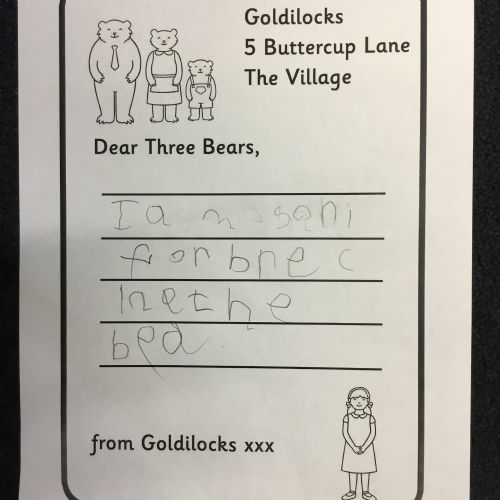 Goldilocks
5 Buttercup Lane
The Village
Dear Three Bears,
I a m sani
for bne c
he the
bed.
from Goldilocks xxx